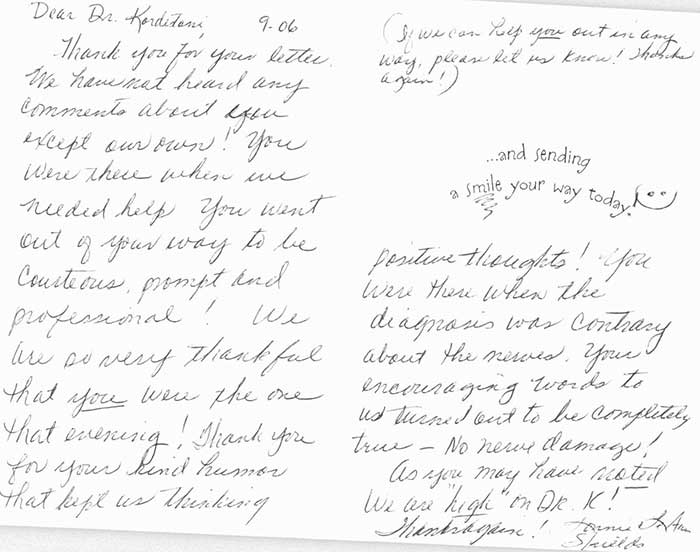 Dear Dr. Korditani 9-06
Thank you for your letter.
We have not heard any
comments about you
except our own! You
were there when we
needed help You went
out of your way to be
Courteous, prompt and
professional! We
are so very thankful
that you were the one
that evening! Thank you
for your kind humor
that kept us thinking
(If we can help you out in any
way, please let us know! Thanks
again!)
...and sending
a smile your way today!
positive thoughts! You
were there when the
diagnosis was contrary
about the nerves. Your
encouraging words to
us turned out to be completely
true – No nerve damage!
As you may have noted
We are "high" on DR. K!
Thanks again!
Shields